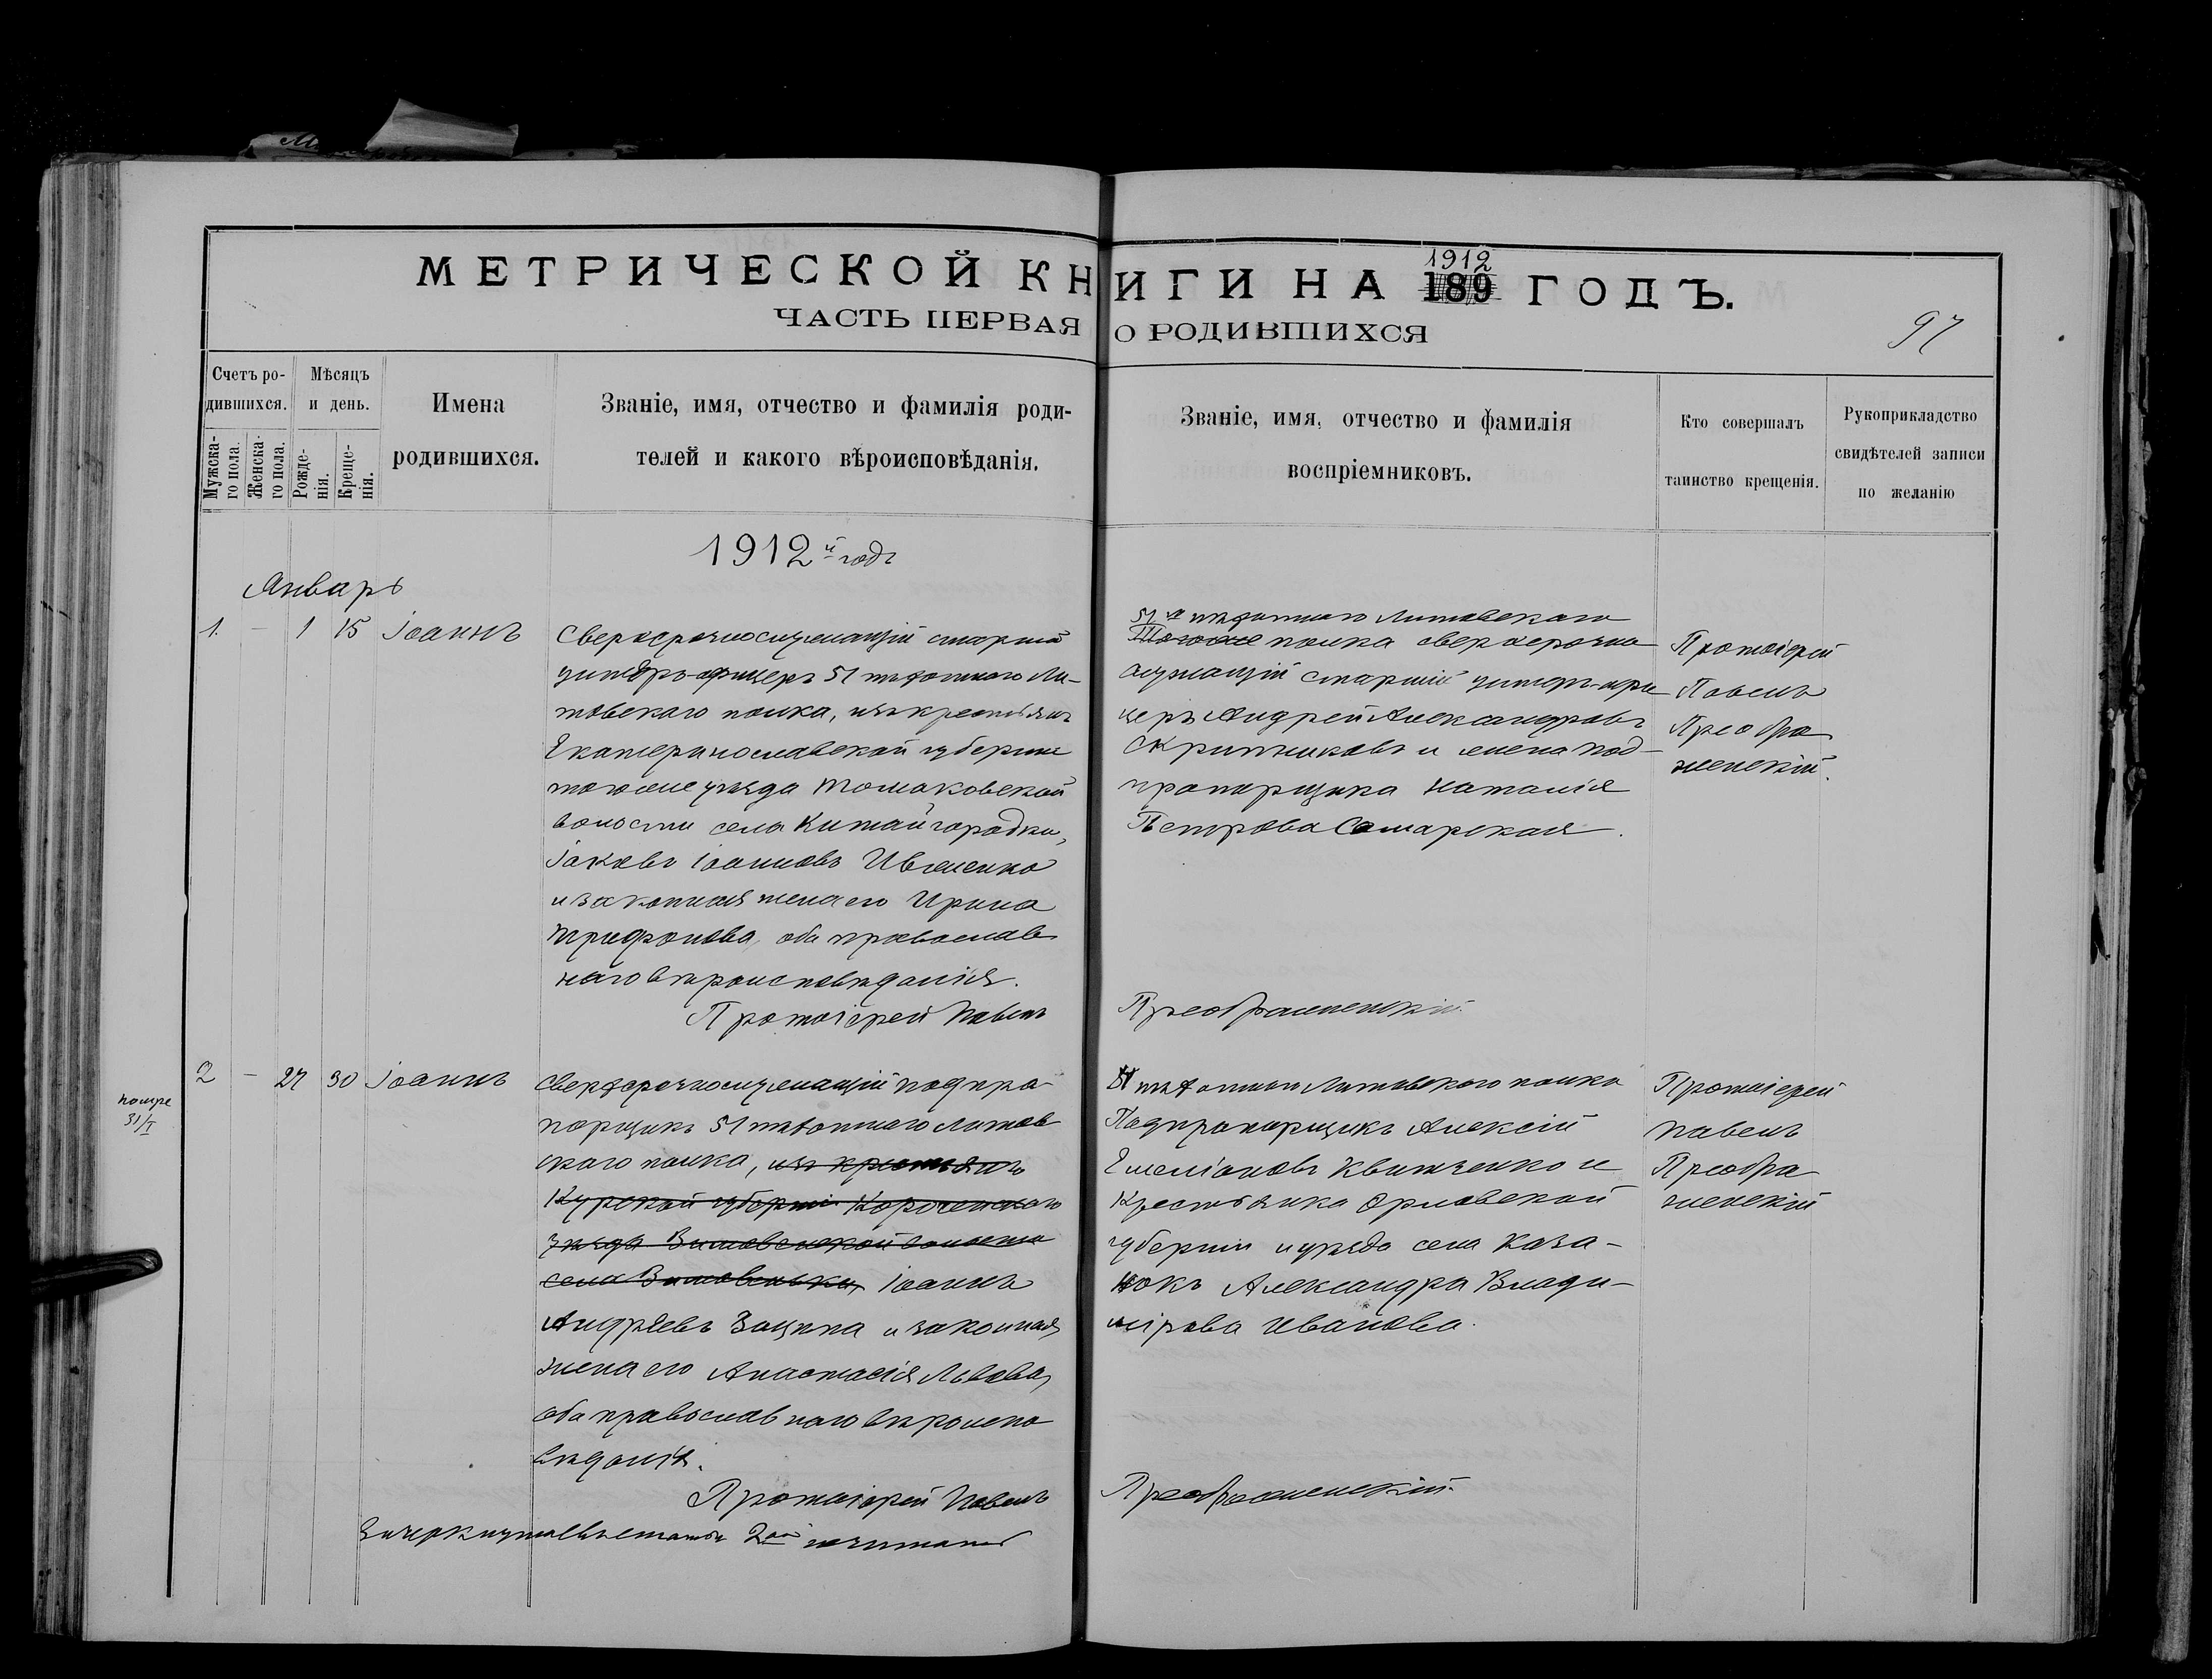 МЕТРИЧЕСКОЙ КНИГИ НА 1912 189 ГОДЪ.
ЧАСТЬ ПЕРВАЯ О РОДИВШИХСЯ
97
Счетъ ро-
дившихся.
Мужска-
го пола.
Женска-
го пола.
Мѣсяцъ
и день.
Рожде-
нія.
Креще-
нія.
Имена
родившихся.
Званіе, имя, отчество и фамилія роди-
телей и какого вѣроисповѣданія.
Званіе, имя, отчество и фамилія
воспріемниковъ.
Кто совершалъ
таинство крещенія.
Рукоприкладство
свидѣтелей записи
по желанію
1912й годъ
Январь
1. – 1 15 Іоаннъ
Сверхсрочнослужащій старшій
унтеръ-офицеръ 51 пѣхотнаго Ли-
товскаго полка, изъ крестьянъ
Екатеринославской губерніи
того же уѣзда Томаковской
волости села Китайгородки,
Іаковъ Іоанновъ Ивженко
и законная жена его Ирина
Трифонова, оба православ
наго вѣроисповѣданія.
Протоіерей Павелъ Преображенскій.
51го пѣхотнаго Литовскаго
Того же полка сверхсрочно
служащій старшій унтеръ-офи
церъ Андрей Александровъ
Скрипниковъ и жена под-
прапорщика Наталія
Петрова Самарская.
Протоіерей
Павелъ
Преобра
женскій.
2 – 27 30 Іоаннъ
помре
31/I
Сверхсрочнослужащій подпра-
порщикъ 51 пѣхотнаго Литов
скаго полка, изъ крестьянъ
Курской губерніи Корочанскаго
уѣзда волости
села Іоаннъ
Андреевъ Защепа и законная
жена его Анастасія Львова,
оба православнаго вѣроиспо
вѣданія.
Протоіерей Павелъ Преображенскій.
51 пѣхотнаго Литовскаго полка
Подпрапорщикъ Алексій
Емеліановъ Квитченко и
Крестьянка Орловской
губерніи и уѣзда села Каза-
нокъ Александра Влади-
мірова Иванова.
Протоіерей
Павелъ
Преобра
женскій
Зачеркнутое въ статьѣ 2ой не читать